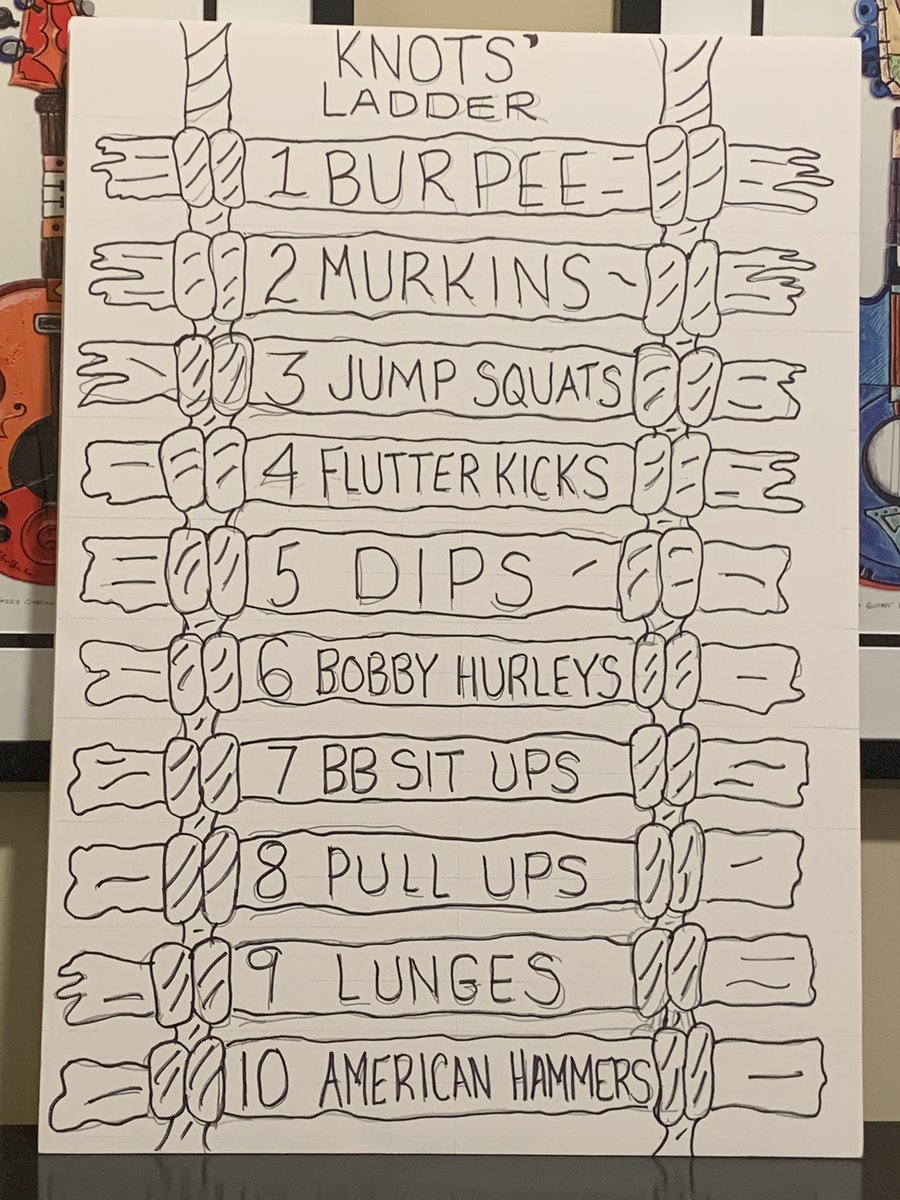 KNOTS'
LADDER
1 BURPEE
2 MURKINS
3 JUMP SQUATS
4 FLUTTER KICKS
5 DIPS
6 BOBBY HURLEYS
7 BB SIT UPS
8 PULL UPS
9 LUNGES
10 AMERICAN HAMMERS